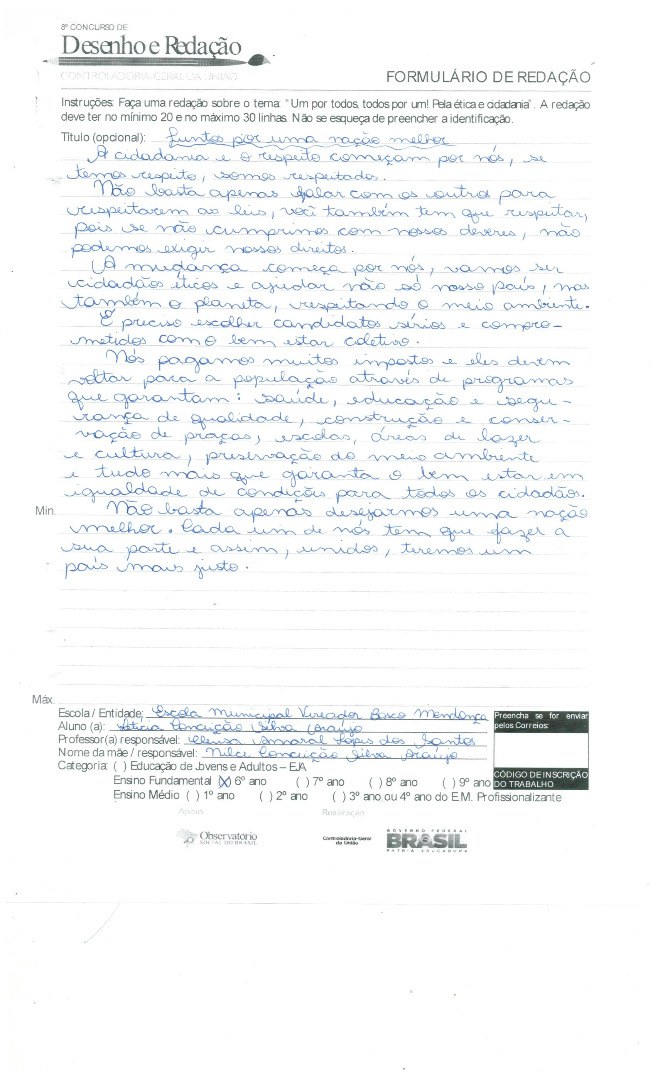 8º CONCURSO DE
Desenho e Redação
CONTROLADORIA-GERAL DA UNIÃO
FORMULÁRIO DE REDAÇÃO
Instruções: Faça uma redação sobre o tema: "Um por todos, todos por um! Pela ética e cidadania". A redação
deve ter no mínimo 20 e no máximo 30 linhas. Não se esqueça de preencher a identificação.
Título (opcional): Juntos por uma nação melhor
A cidadania e o respeito começam por nós, se
temos respeito, somos respeitados.
Não basta apenas falar com os outros para
respeitarem as leis, você também tem que respeitar,
pois se não cumprimos com nossos deveres, não
podemos exigir nossos direitos.
A mudança começa por nós, vamos ser
cidadãos éticos e ajudar não só nosso país, mas
também o planeta, respeitando o meio ambiente.
É preciso escolher candidatos sérios e compro-
metidos com o bem estar coletivo.
Nós pagamos muitos impostos e eles devem
voltar para a população através de programas
que garantam: saúde, educação e segu-
rança de qualidade, construção e conser-
vação de praças, escolas, áreas de lazer
e cultura, preservação do meio ambiente
e tudo mais que garanta o bem estar em
igualdade de condições para todos os cidadãos.
Min. Não basta apenas desejarmos uma nação
melhor. Cada um de nós tem que fazer a
sua parte e assim, unidos, teremos um
país mais justo.
Máx.
Escola / Entidade: Escola Municipal Vereador Bosco Mendonça
Aluno (a): Letícia Conceição Silva Araújo
Professor(a) responsável: Cleusa Amaral Lopes dos Santos
Nome da mãe / responsável: Nilce Conceição Silva Araújo
Categoria: ( ) Educação de Jovens e Adultos – EJA
Ensino Fundamental (X) 6º ano ( ) 7º ano ( ) 8º ano ( ) 9º ano
Ensino Médio ( ) 1º ano ( ) 2º ano ( ) 3º ano ou 4º ano do E.M. Profissionalizante
Preencha se for enviar
pelos Correios:
CÓDIGO DE INSCRIÇÃO
DO TRABALHO
Apoio
Realização
Observatório
SOCIAL DO BRASIL
Controladoria-Geral
da União
GOVERNO FEDERAL
BRASIL
PÁTRIA EDUCADORA